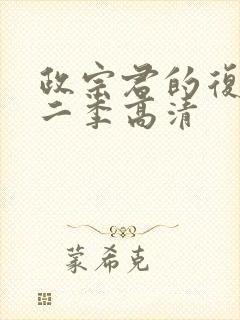 政宗君的復
二季高清
蒙希克